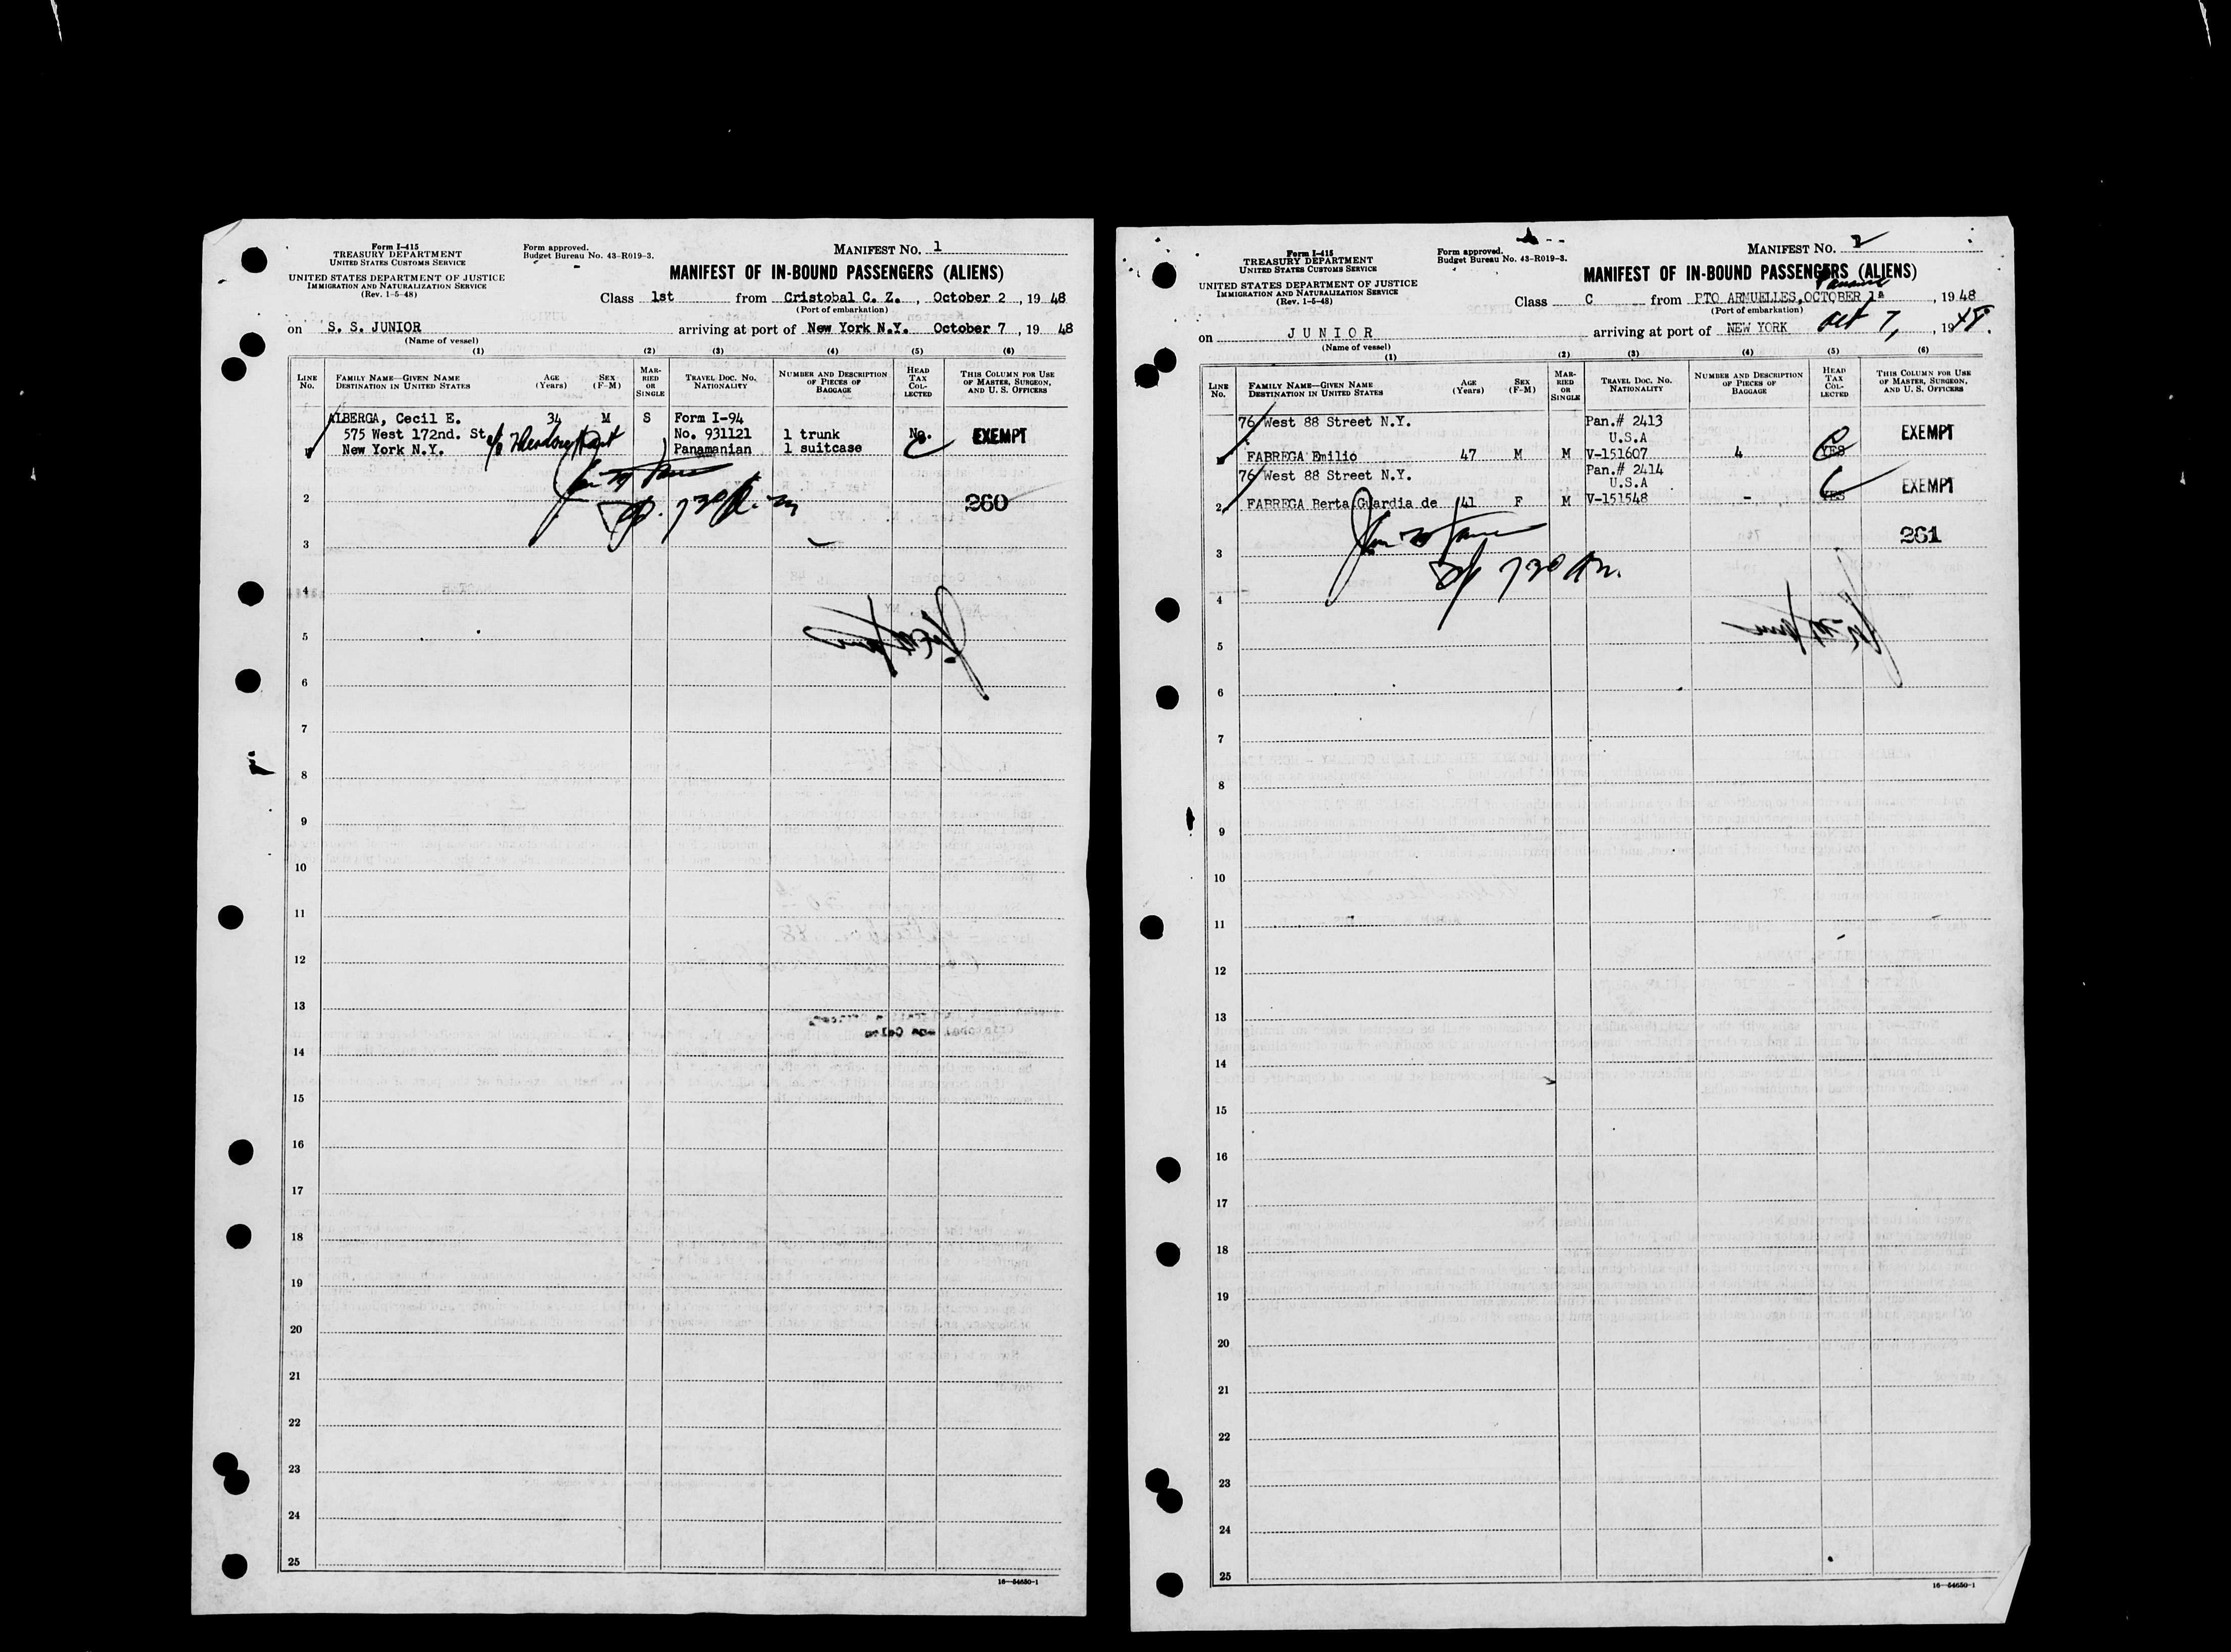 Form I-415
TREASURY DEPARTMENT
UNITED STATES CUSTOMS SERVICE
UNITED STATES DEPARTMENT OF JUSTICE
IMMIGRATION AND NATURALIZATION SERVICE
(Rev. 1-5-48)
Form approved.
Budget Bureau No. 43-R019-3.
MANIFEST No. 1
MANIFEST OF IN-BOUND PASSENGERS (ALIENS)
Class 1st from Cristobal C. Z., October 2, 1948
(Port of embarkation)
on S. S. JUNIOR arriving at port of New York N.Y. October 7, 19 48
(Name of vessel)
(1) (2) (3) (4) (5) (6)
LINE No.
FAMILY NAME—GIVEN NAME
DESTINATION IN UNITED STATES
AGE (Years)
SEX (F-M)
MARRIED OR SINGLE
TRAVEL DOC. No. NATIONALITY
NUMBER AND DESCRIPTION OF PIECES OF BAGGAGE
HEAD TAX COLLECTED
THIS COLUMN FOR USE OF MASTER, SURGEON, AND U. S. OFFICERS
ALBERGA, Cecil E. 34 M S Form I-94
575 West 172nd. St. No. 931121 1 trunk No. EXEMPT
1 New York N.Y. Panamanian 1 suitcase
2 260
3
4
5
6
7
8
9
10
11
12
13
14
15
16
17
18
19
20
21
22
23
24
25
16—54650-1
Form I-415
TREASURY DEPARTMENT
UNITED STATES CUSTOMS SERVICE
UNITED STATES DEPARTMENT OF JUSTICE
IMMIGRATION AND NATURALIZATION SERVICE
(Rev. 1-5-48)
Form approved.
Budget Bureau No. 43-R019-3.
MANIFEST No. 2
MANIFEST OF IN-BOUND PASSENGERS (ALIENS)
Panama
Class C from PTO ARMUELLES, OCTOBER 1a, 1948
(Port of embarkation)
on JUNIOR arriving at port of NEW YORK Oct 7, 1948.
(Name of vessel)
(1) (2) (3) (4) (5) (6)
LINE No.
FAMILY NAME—GIVEN NAME
DESTINATION IN UNITED STATES
AGE (Years)
SEX (F-M)
MARRIED OR SINGLE
TRAVEL DOC. No. NATIONALITY
NUMBER AND DESCRIPTION OF PIECES OF BAGGAGE
HEAD TAX COLLECTED
THIS COLUMN FOR USE OF MASTER, SURGEON, AND U. S. OFFICERS
76 West 88 Street N.Y. Pan.# 2413
U.S.A EXEMPT
1 FABREGA Emilio 47 M M V-151607 4 YES
76 West 88 Street N.Y. Pan.# 2414
U.S.A EXEMPT
2 FABREGA Berta Guardia de 41 F M V-151548 - YES
261
3
4
5
6
7
8
9
10
11
12
13
14
15
16
17
18
19
20
21
22
23
24
25
16—54650-1